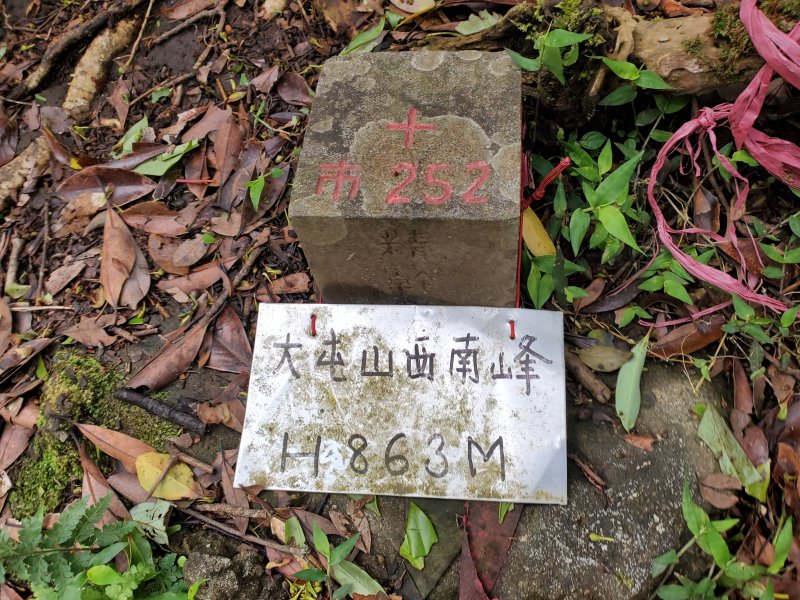 十
市252
大屯山西南峰
H863M